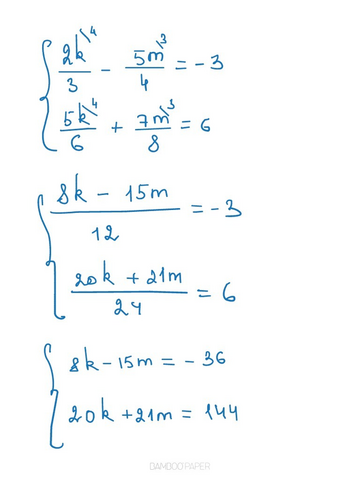 2k\4/3 - 5m\3/4 = -3
5k\4/6 + 7m\3/8 = 6
8k - 15m/12 = -3
20k + 21m/24 = 6
8k - 15m = -36
20k + 21m = 144
BAMBOO PAPER